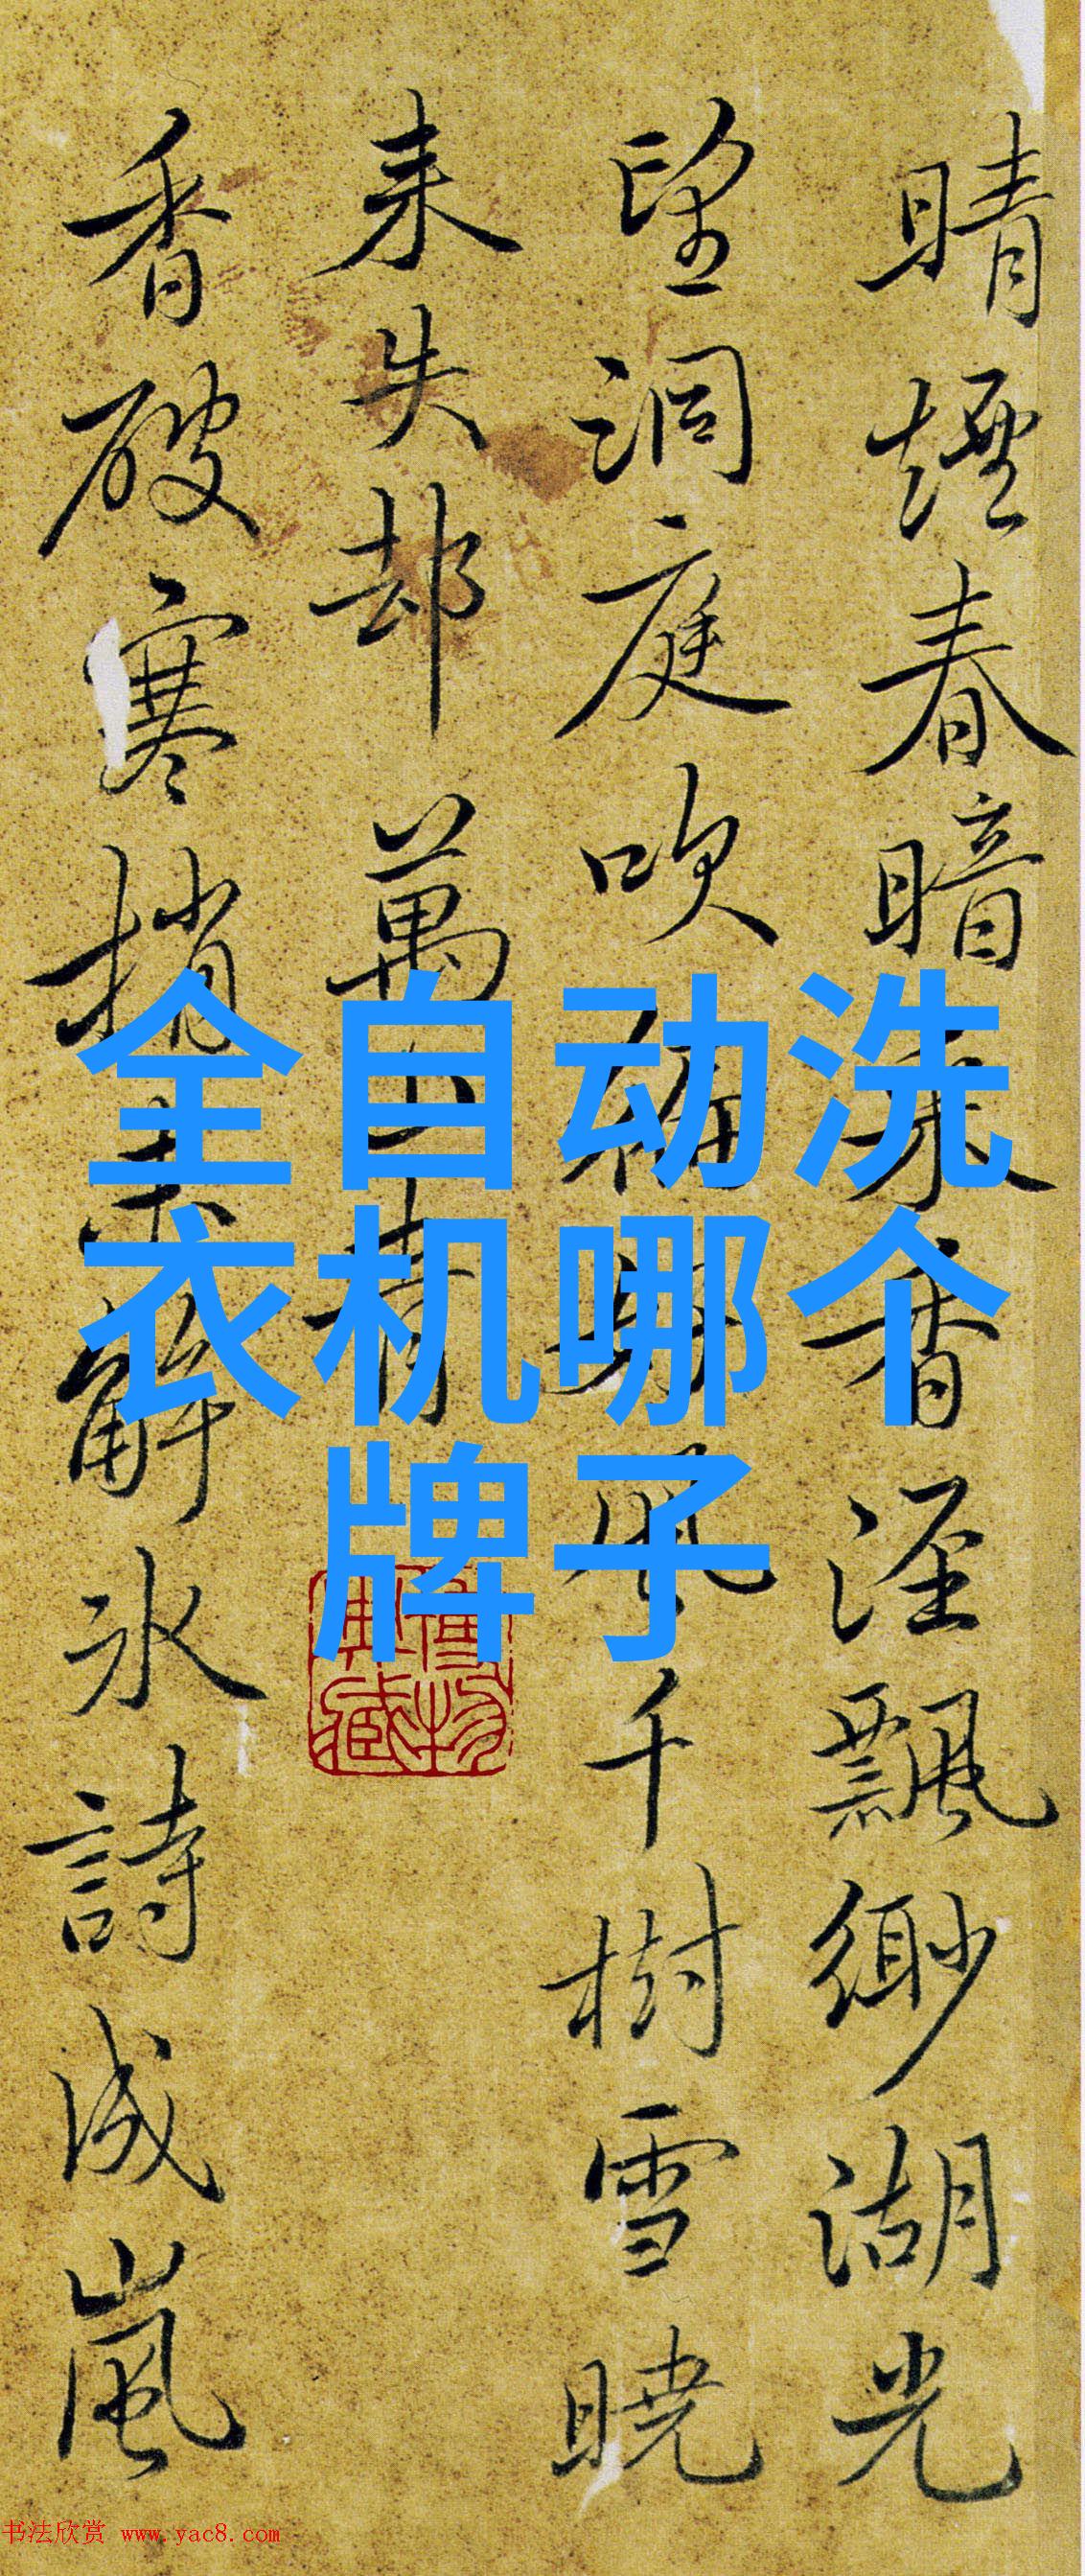 晴煙春暗香溼飄緲湖光
望洞庭吹風千樹雪曉
来失却萬青
香破寒梢解冰詩成嵐
全自动洗
衣机哪个
牌子
书法欣赏 www.yac8.com